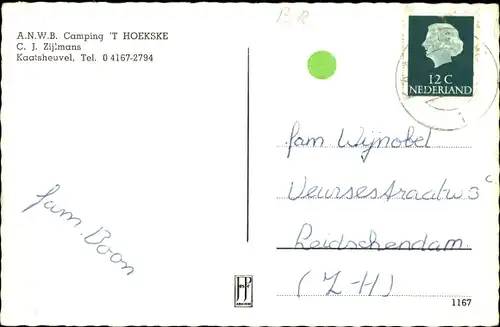 A.N.W.B. Camping 'T HOEKSKE
C. J. Zijlmans
Kaatsheuvel, Tel. 0 4167-2794
12 C
NEDERLAND
fam Wijnobel
Veursestraatw 3c
Leidschendam
(Z-H)
fam. Boon
1167